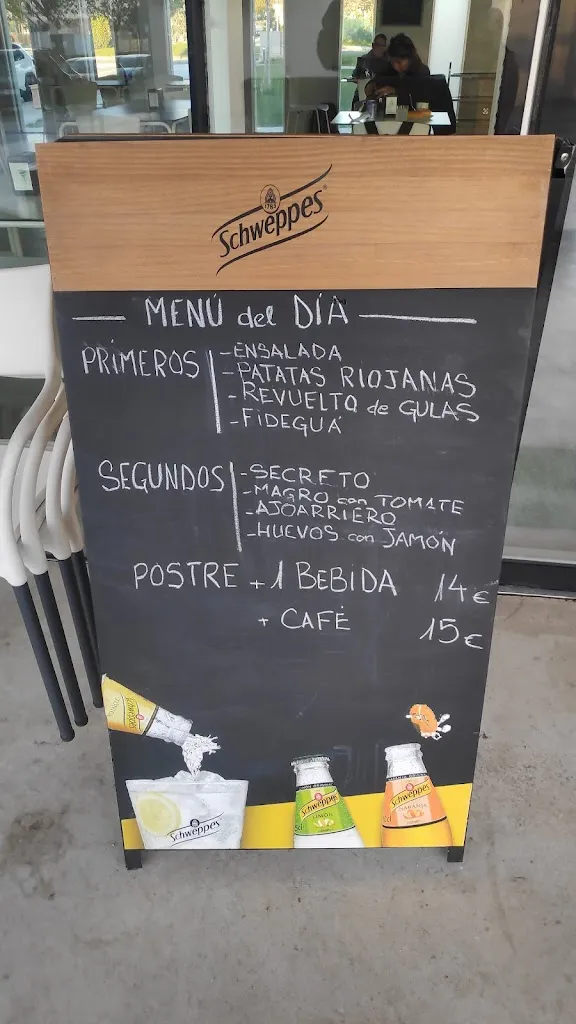 Schweppes
MENÚ del DÍA
PRIMEROS
- ENSALADA
- PATATAS RIOJANAS
- REVUELTO de GULAS
- FIDEGUÁ
SEGUNDOS
- SECRETO
- MAGRO con TOMATE
- AJOARRIERO
- HUEVOS con JAMÓN
POSTRE + 1 BEBIDA 14€
+ CAFÉ 15€
Schweppes
Schweppes
Schweppes
LIMÓN
Schweppes
NARANJA